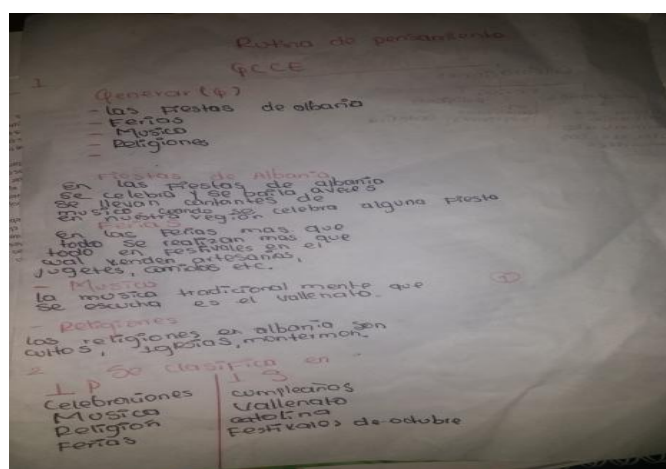 Rutina de pensamiento
GCCE
1
Generar (G)
- las Fiestas de albania
- Ferias
- Musica
- Religiones
-
Fiestas de Albania
En las Fiestas de albania
se celebra y se baila aveces
se llevan cantantes de
musica cuando se celebra alguna Fiesta
en nuestra región
Ferias
En las Ferias mas que
todo se realizan mas que
todo en Festivales en el
cual venden artesanias,
jugetes, comidas etc.
- Musica
la musica tradicional mente que
se escucha es el vallenato.
- Religiones
las religiones en albania son
cultos, iglesias,
2 Se clasifica en
I P | I S
Celebraciones | cumpleaños
Musica | Vallenato
Religion | catolina
Ferias | Festivales de octubre